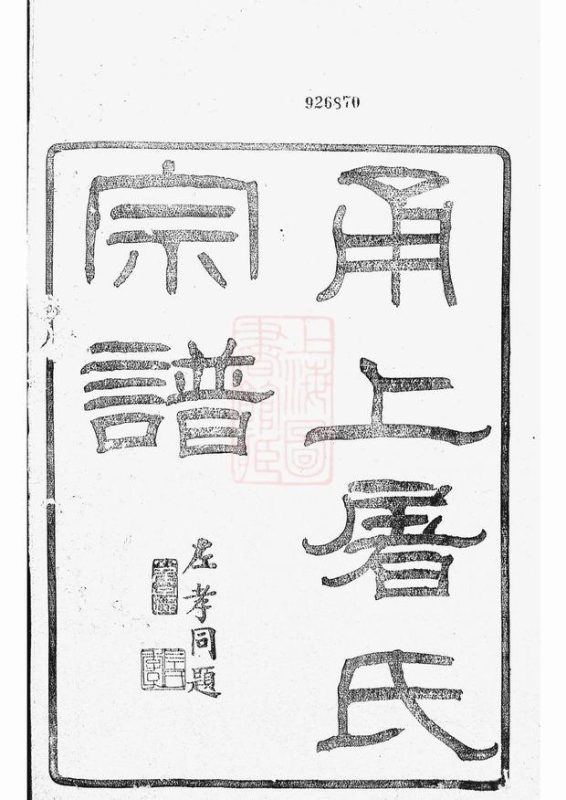 926870
甬上屠氏
宗譜
左孝同題
上海圖書館藏